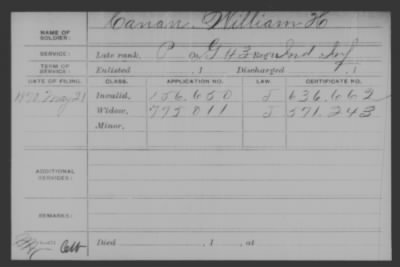 NAME OF SOLDIER: Canan, William H
SERVICE: Late rank, P Co. G 43 Reg't Ind Inf
TERM OF SERVICE: Enlisted 1 Discharged 1
DATE OF FILING. CLASS. APPLICATION NO. LAW. CERTIFICATE NO.
1870 May 21 Invalid, 156.650 636.662
Widow, 775011 571.243
Minor,
ADDITIONAL SERVICES:
REMARKS:
Died , 1 , at